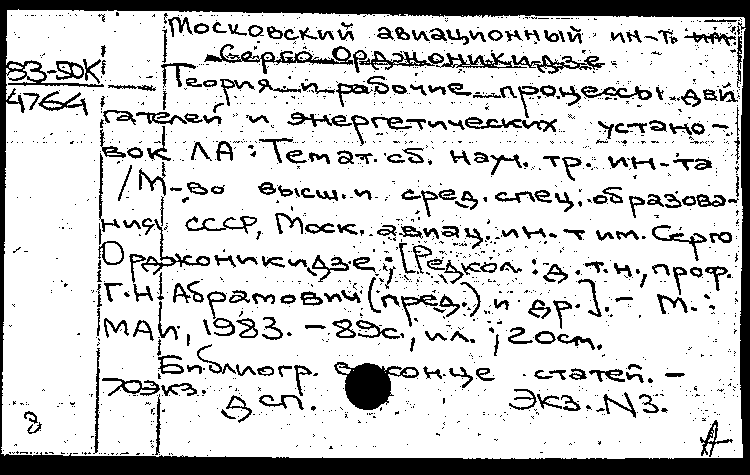 Московский авиационный ин-т им.
Серго Орджоникидзе
83-50К
4764
Теория и рабочие процессы дви
гателей и энергетических устано-
вок ЛА : Темат. сб. науч. тр. ин-та
/М-во высш. и сред. спец. образова-
ния СССР, Моск. авиац. ин-т им. Серго
Орджоникидзе ; [Редкол. : д.т.н., проф.
Г.Н. Абрамович (пред.) и др.]. - М. :
МАИ, 1983. - 89с., ил. ; 20см.
Библиогр. в конце статей. -
70экз.
ДСП. Экз. N3.
8
А